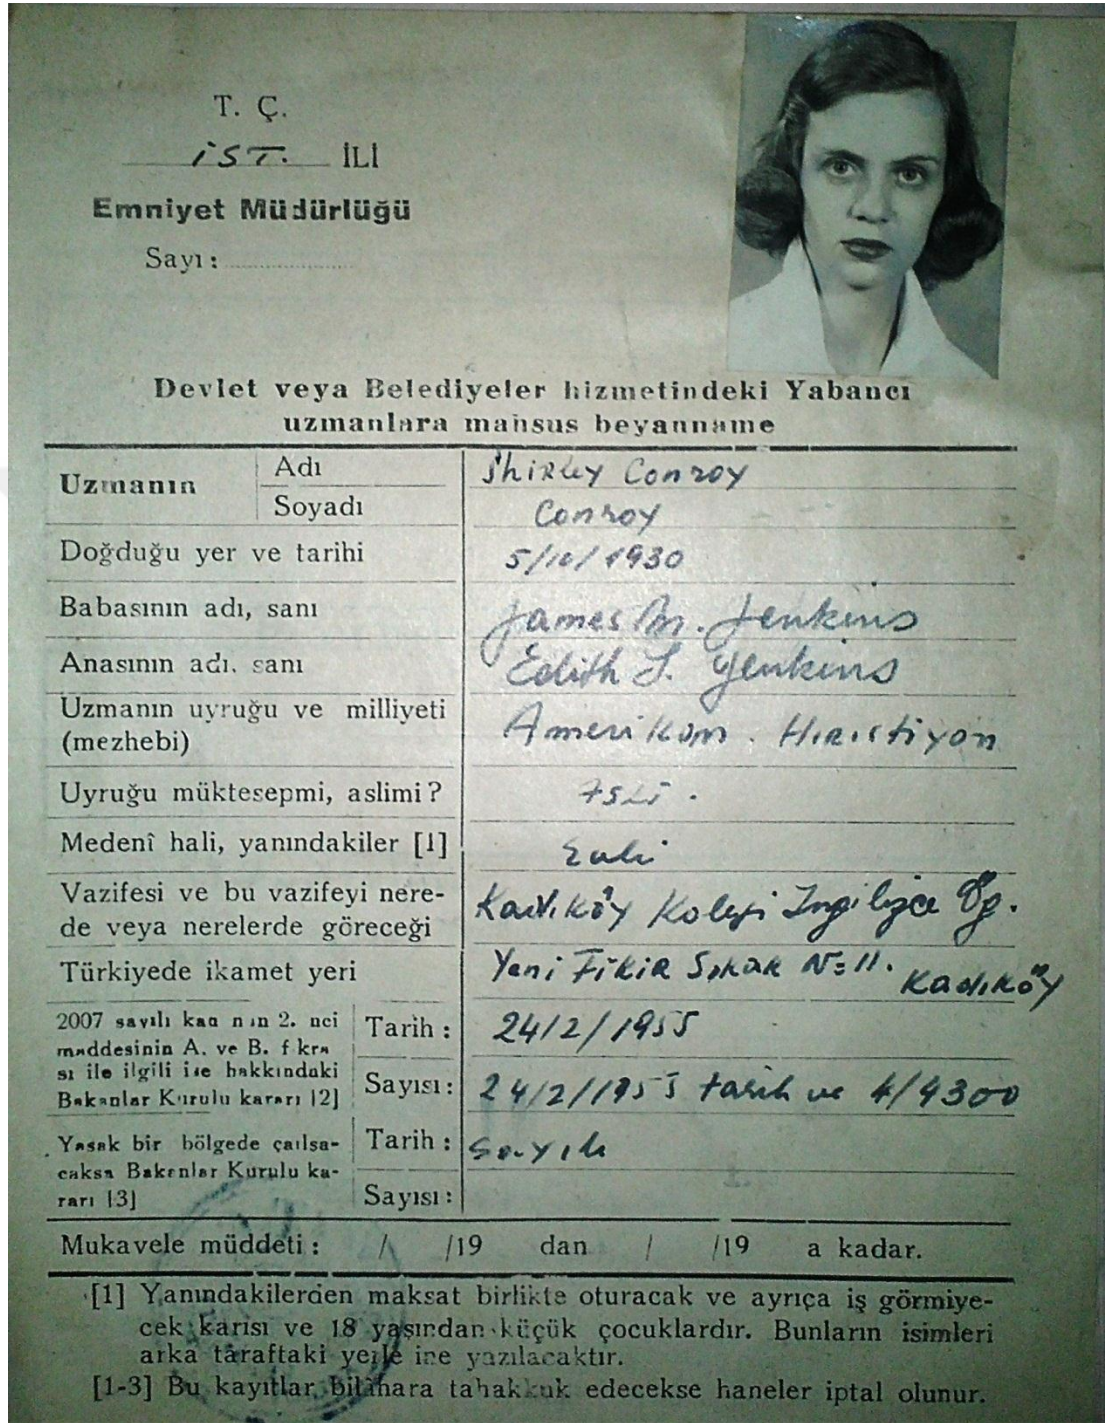 T. Ç.
İST. İLİ
Emniyet Müdürlüğü
Sayı :
Devlet veya Belediyeler hizmetindeki Yabancı
uzmanlara mahsus beyanname
Uzmanın Adı Shirley Conroy
Soyadı Conroy
Doğduğu yer ve tarihi 5/10/1930
Babasının adı, sanı James M. Jenkins
Anasının adı. sanı Edith L. Jenkins
Uzmanın uyruğu ve milliyeti
(mezhebi) Amerikan. Hıristiyan
Uyruğu müktesepmi, aslimi? Asli.
Medenî hali, yanındakiler [1] Evli
Vazifesi ve bu vazifeyi nere-
de veya nerelerde göreceği Kadıköy Koleji İngilizce Öğ.
Türkiyede ikamet yeri Yeni Fikir Sokak No 11. Kadıköy
2007 sayılı kanunun 2. nci
maddesinin A. ve B. fıkra
sı ile ilgili ise hakkındaki
Bakanlar Kurulu kararı [2]
Tarih : 24/2/1955
Sayısı : 24/2/1955 tarih ve 4/4300
Yasak bir bölgede çalışa-
caksa Bakanlar Kurulu ka-
rarı [3]
Tarih : sayılı
Sayısı :
Mukavele müddeti : / /19 dan / /19 a kadar.
[1] Yanındakilerden maksat birlikte oturacak ve ayrıça iş görmiye-
cek karısı ve 18 yaşından küçük çocuklardır. Bunların isimleri
arka taraftaki yerle ine yazılacaktır.
[1-3] Bu kayıtlar bilâhara tahakkuk edecekse haneler iptal olunur.